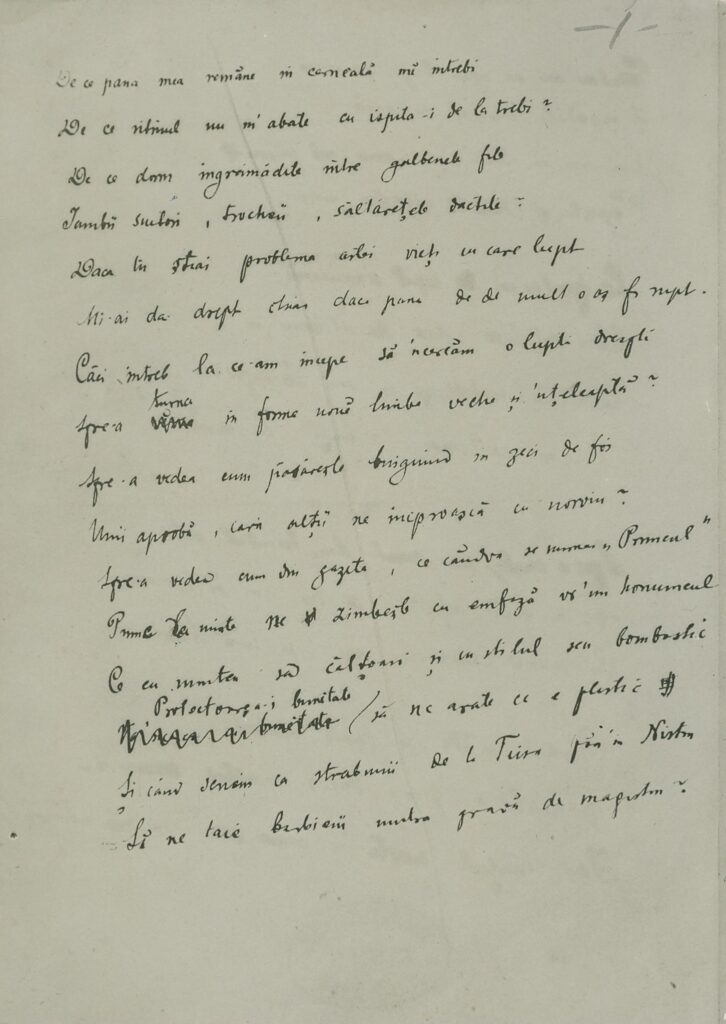 -1-
De ce pana mea rămâne in cerneală mĕ intrebi
De ce ritmul nu m'abate cu ispita-i de la trebi?
De ce dorm ingrămădite intre galbenele file
Iambii suitori, trocheii, săltărețele dactile?
Daca tu știai problema astei vieți cu care lupt
Mi-ai da drept chiar daca pana de de mult o aș fi rupt.
Căci intreb la ce-am incepe să 'ncercăm o luptă dreaptă
Spre-a turna in forme nouĕ limba veche și 'nțeleaptă?
Spre-a vedea cum păsărește buiguind in zeci de foi
Unii aprobă, iară alții ne improașcă cu noroiu?
Spre-a vedea cum din gazeta, ce cândva se numea „Pruncul"
Pune la minte ne zimbește cu emfază vr'un
Ce cu mintea să călĕtoari și cu stilul seu bombastic
Protectoarea-i bunĕtate / să ne arate ce e plastic
Și când scriem ca strabunii de la Tissa păn'in Nistru
Să ne taie barbierii mutra gravă de magistru?